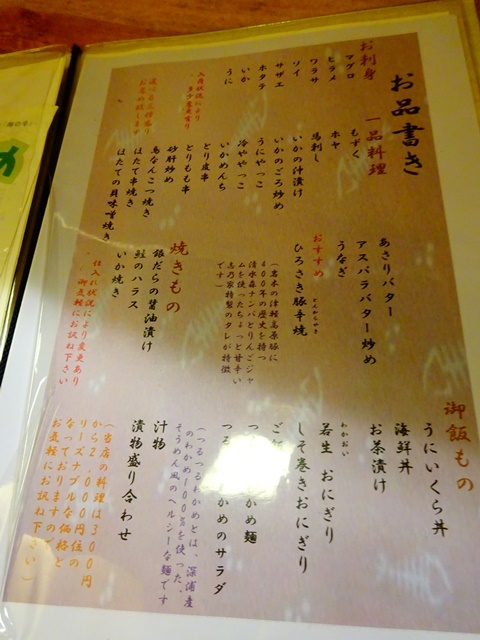 お品書き
お刺身
マグロ
ヒラメ
ワラサ
ソイ
サザエ
ホタテ
いか
うに
入荷状況により
多少変更有り
一品料理
もずく
ホヤ
馬刺し
いかの汁漬け
いかのごろ炒め
うにやっこ
冷ややっこ
いかめんち
とり皮串
とりもも串
砂肝炒め
鳥なんこつ焼き
ほたて串焼き
ほたての貝味噌焼き
あさりバター
アスパラバター炒め
うなぎ
おすすめ
ひろさき豚辛焼
とんからやき
（嘉本の津軽高原豚に
400年の歴史を持つ
清水森ナンバとりんごジャ
ムを使ったちょっと甘辛い
志乃家特製のタレが特徴
です）
焼きもの
銀だらの醤油漬け
鮭のハラス
いか焼き
・仕入れ状況により変更あり
・御気軽にお訊ね下さい
御飯もの
うにいくら丼
海鮮丼
お茶漬け
若生 おにぎり
わかおい
しそ巻きおにぎり
ご
つ め麺
つる かめのサラダ
（つるつるわかめとは、深浦産
のわかめ100%を使った、
そうめん風のヘルシーな麺です
汁物
漬物盛り合わせ
（当店の料理は300円
から2,000円位の
リーズナブルな価格と
なっておりますので
お気軽にお訊ね下さい）